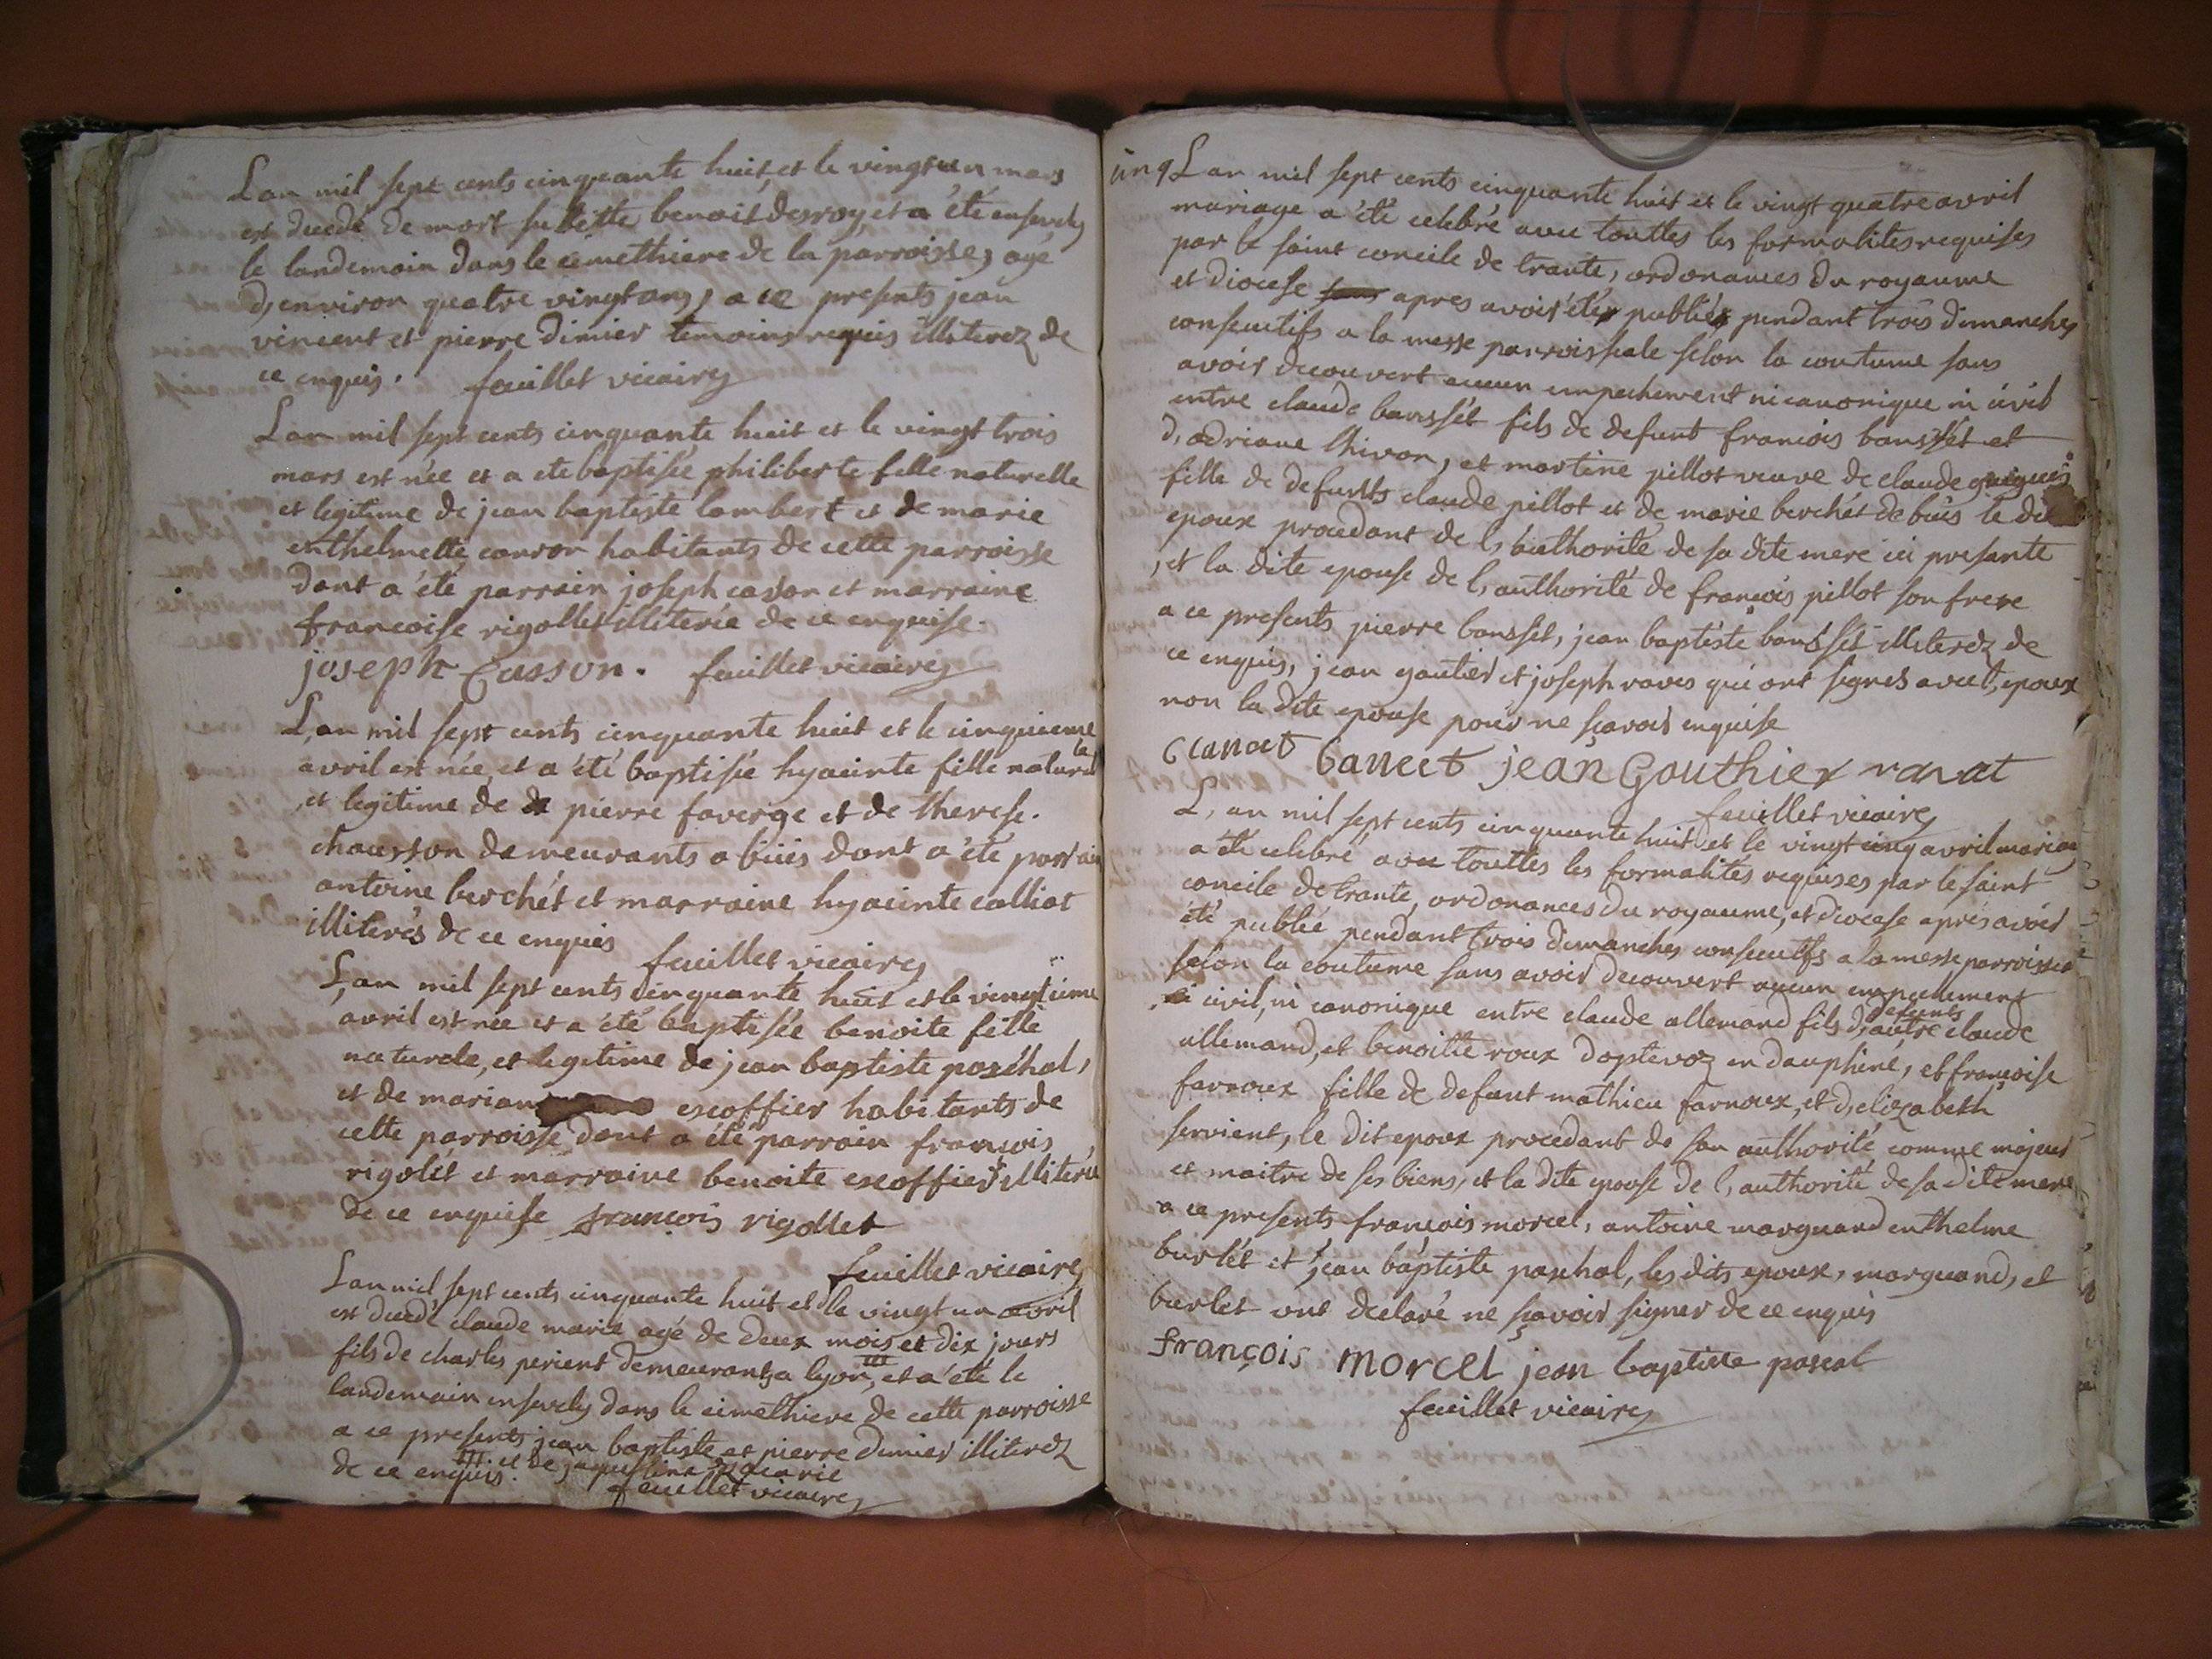 Lan mil sept cents cinquante huit, et le vingt un mars
est decedé de mort subitte benoit desroy, et a été ensevely
le landemain dans le cemethiere de la parroisse, agé
d,environ quatre vingt ans, a ce presents jean
vincent et pierre dimier temoins requis illiterez de
ce enquis. feuillet vicaire
Lan mil sept cents cinquante huit et le vingt trois
mars est née et a ete baptisée philiberte fille naturelle
et legitime de jean baptiste lambert et de marie
enthelmette carron habitants de cette parroisse
dont a été parrain joseph casson et marraine
francoise rigollet illiterée de ce enquise.
joseph Casson. feuillet vicaire
L,an mil sept cents cinquante huit et le cinquieme
avril est née, et a été baptisée hyacinte fille naturel
la
et legitime de pierre faverge et de therese.
chausson demeurants a buis dont a été parrain
antoine berchét et marraine hyacinte calliat
illiterés de ce enquis feuillet vicaire
L,an mil sept cents cinquante huit et le vingtieme
avril est née et a été baptisée benoite fille
naturele, et legitime de jean baptiste paschal,
et de marian escoffier habitants de
cette parroisse dont a été parrain françois
rigolét et marraine benoite escoffier illiterée
de ce enquise françois rigollet
feuillet vicaire
Lan mil sept cents cinquante huit et le vingt un avril
est decedé claude marie agé de deux mois et dix jours
fils de charles perient demeurants a lyon, et a été le
landemain ensevely dans le cimethiere de cette parroisse
a ce presents jean baptiste et pierre dimier illiterez
de ce enquis. et de jaqueline
feuillet vicaire
cinq Lan mil sept cents cinquante huit et le vingt quatre avril
mariage a été celebré avec touttes les formalites requises
par le saint concile de trante, ordonances du royaume
et diocese apres avoir été publiés pendant trois dimanches
consecutifs a la messe parroissiale selon la coutume sans
avoir decouvert aucun empechement ni canonique ni civil
entre claude bansset fils de defunt francois bansset et
d,adriane thivon, et martine pillot veuve de claude guigues
fille de defunts claude pillot et de marie berchét de buis le dit
epoux procedant de l,authorité de sa dite mere ici presante
,et la dite epouse de l,authorité de francois pillot son frere
a ce presents pierre bansset, jean baptiste bansset illiterez de
ce enquis, jean gautier et joseph raves qui ont signés avec l,epoux
non la dite epouse pour ne sçavoir enquise
Clanot bancet jean Gouthier ravat
feuillet vicaire
L,an mil sept cents cinquante huit et le vingt cinq avril mariage
a été celebré avec touttes les formalités requises par le saint
concile de trante, ordonances du royaume, et diocese aprés avoir
été publié pendant trois dimanches consecutifs a la messe parroissiale
selon la coutume sans avoir decouvert aucun empechement
ni civil, ni canonique entre claude allemand fils d,autre claude
defunts
allemand, et benoitte roux doptevoz en dauphiné, et françoise
farnoux fille de defunt mathieu farnoux, et d,elizabeth
servient, le dit epoux procedant de son authorité comme majeur
et maitre de ses biens, et la dite epouse de l,authorité de sa dite mere
a ce presents françois morcel, antoine marguand enthelme
burlét et jean baptiste paschal, les dits epoux, marguand, et
burlet ont declaré ne sçavoir signer de ce enquis
françois morcel jean baptiste pascal
feuillet vicaire